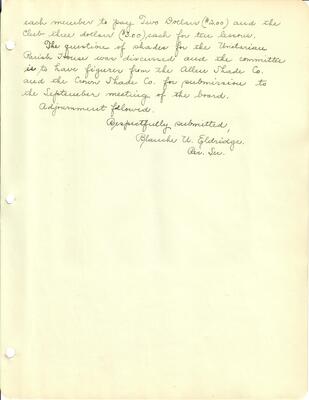 each member to pay Two Dollars ($2.00) and the
Club three dollars ($3.00) each for the lessons.
The question of shades for the Unitarian
Parish House was discussed and the committee
is to have figures from the Allen Shade Co.
and the Crown Shade Co. for submission to
the September meeting of the board.
Adjournment followed.
Respectfully submitted,
Blanche U. Eldridge.
Rec. Sec.